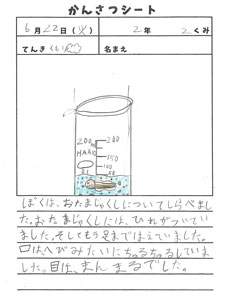 かんさつシート
6月22日(火) 2年 2くみ
てんき くもり 名まえ
200 200
HAAKE 150
100
50
ぼくは、おたまじゃくしについてしらべまし
た。おたまじゃくしには、ひれがついてい
ました。そしてもう足まではえていました。
口はへびみたいにちゅるちゅるしていまし
た。目は、まんまるでした。